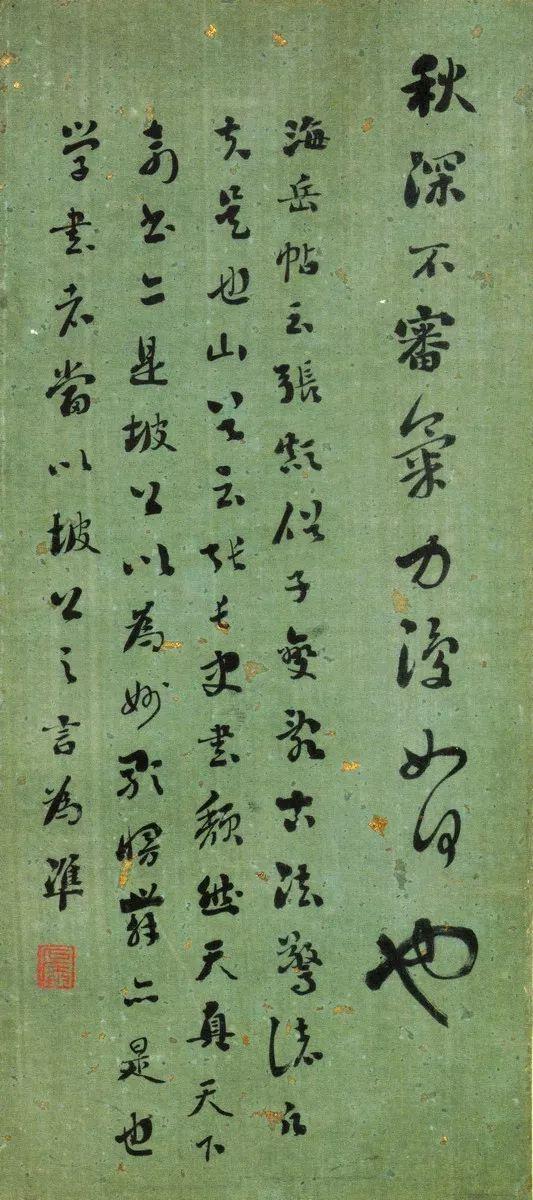 秋深不審氣力復如何也
海岳帖云張顛俗子變亂古法驚諸凡
夫是也山谷云張長史書頹然天真天下
奇書亦是坡公以為妙亦是也
學書者當以坡公之言為準